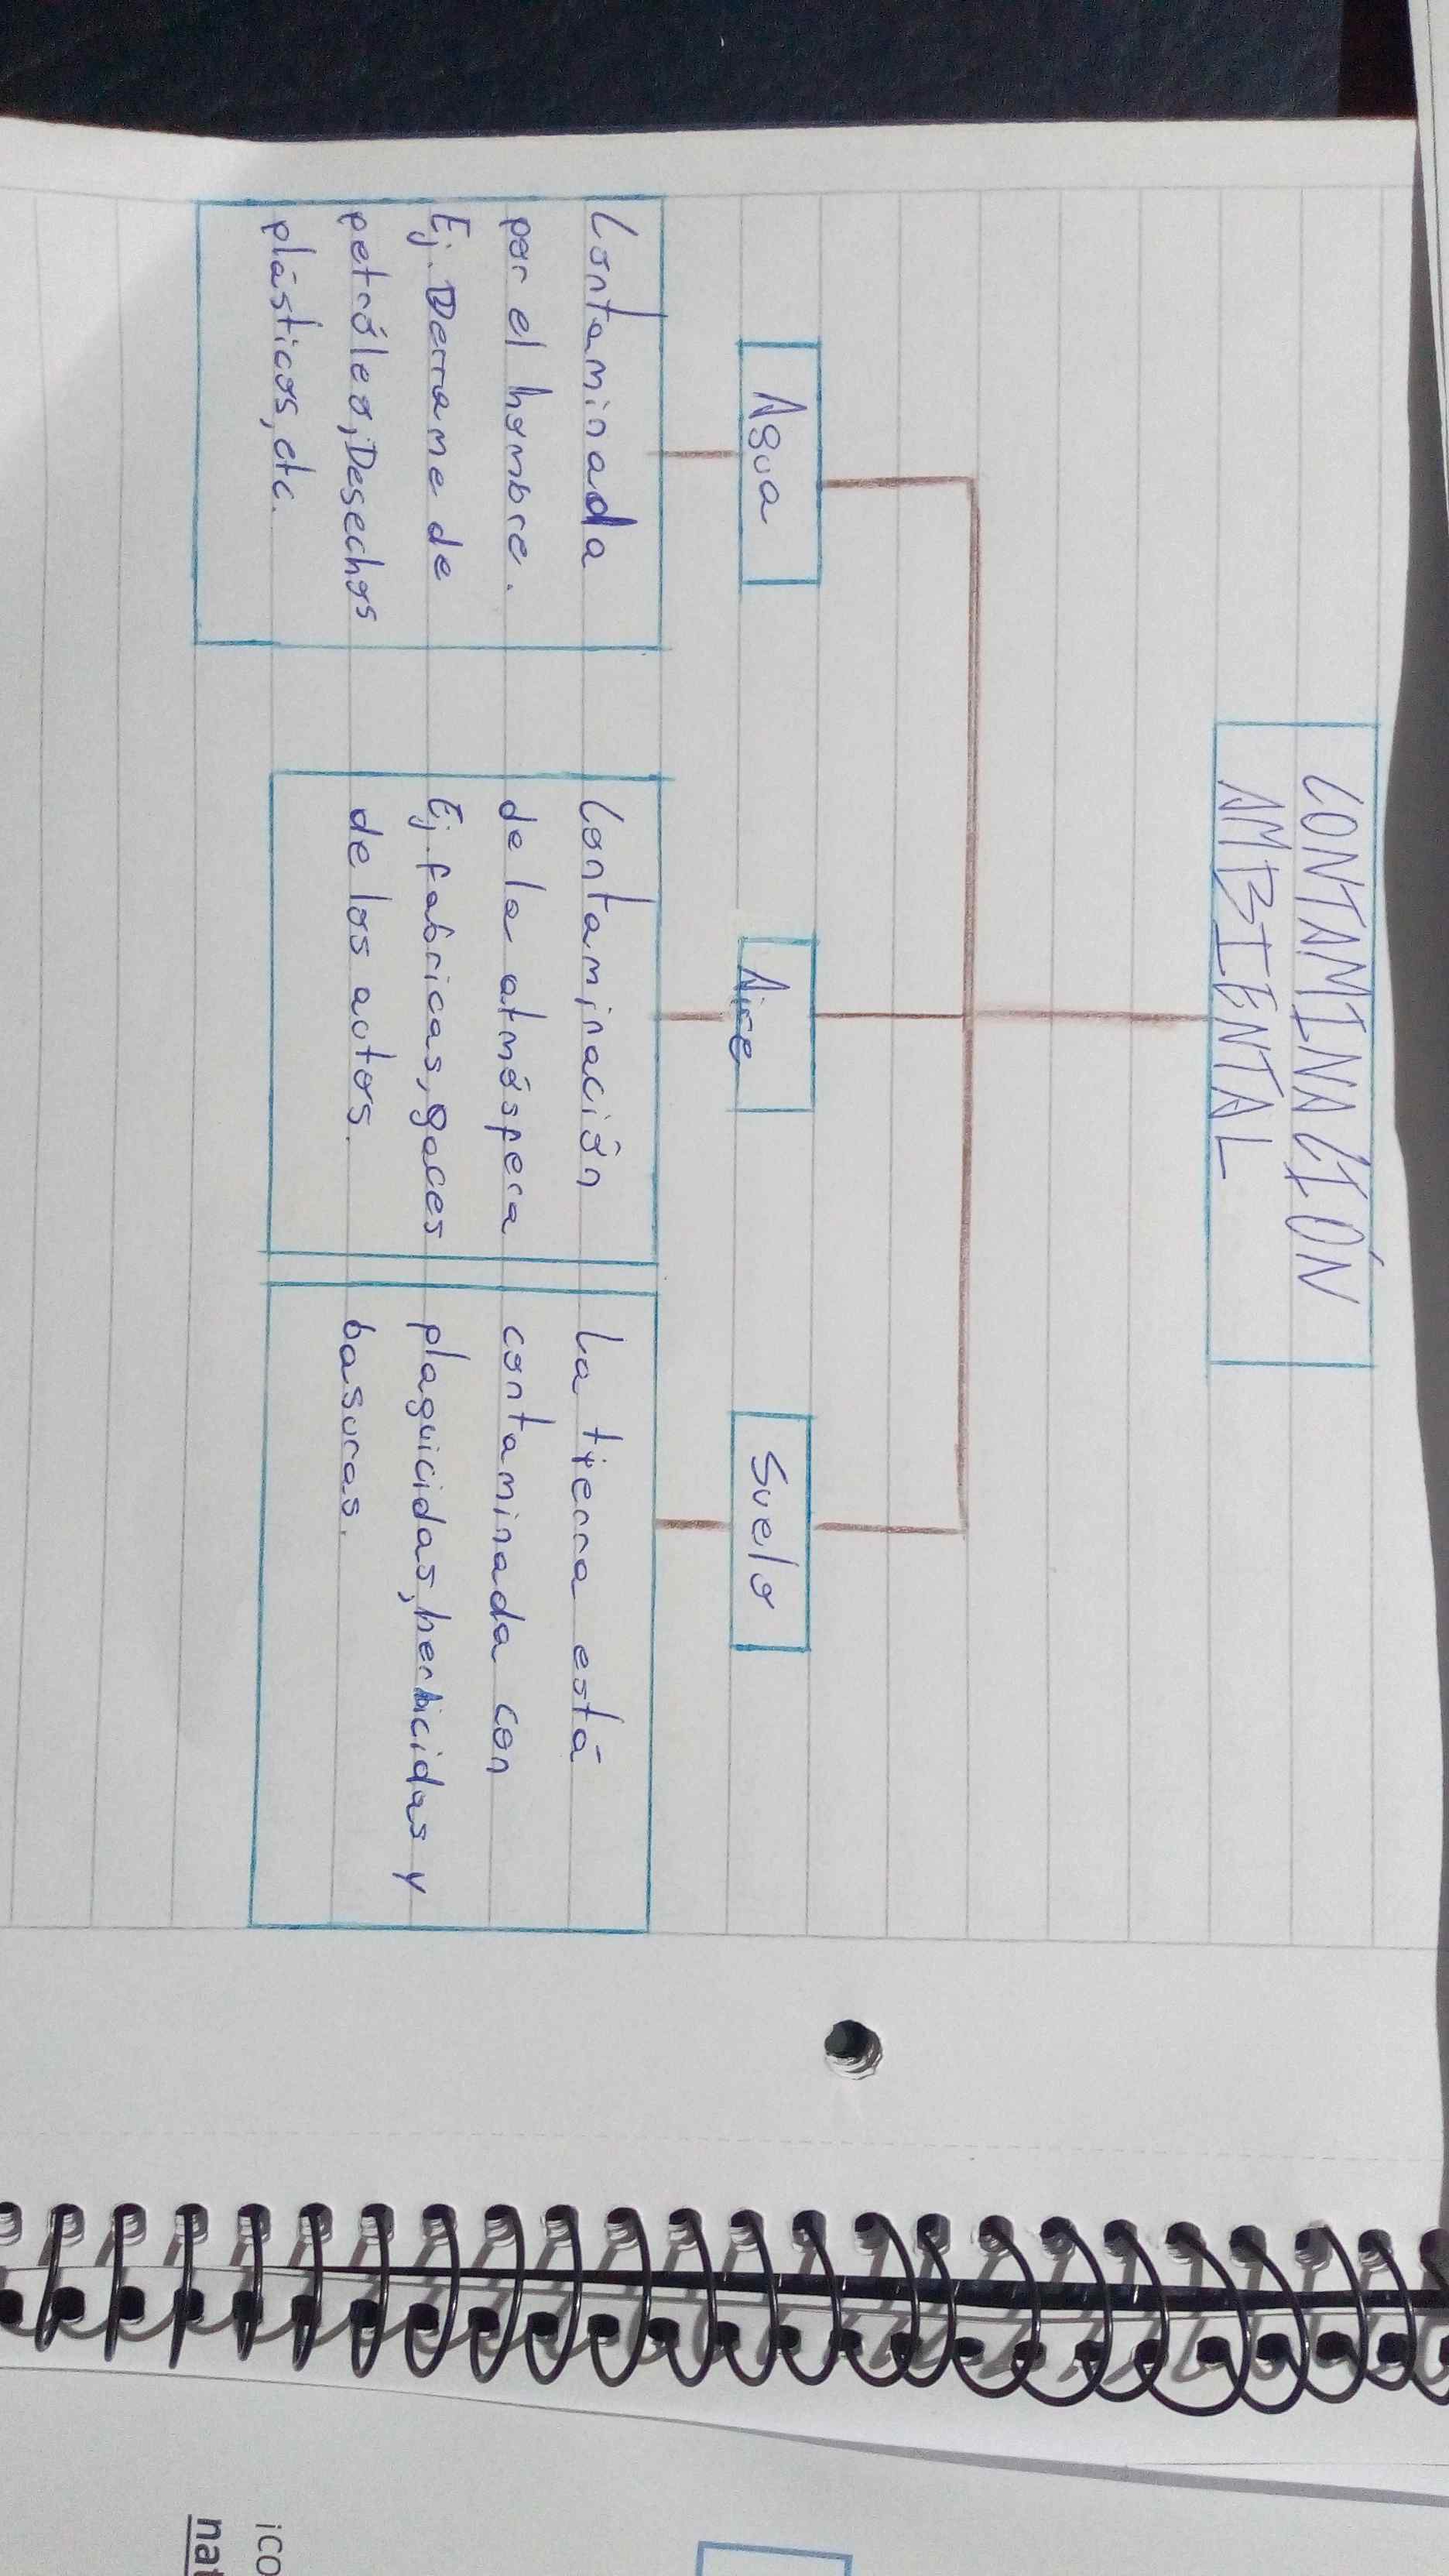 CONTAMINACIÓN
AMBIENTAL
Agua
Aire
Suelo
Contaminada
por el hombre.
Ej. Derrame de
petróleo, Desechos
plásticos, etc.
Contaminación
de la atmósfera
Ej fabricas, gaces
de los autos.
La tierra está
contaminada con
plaguicidas, herbicidas y
basuras.
¡CO
nat